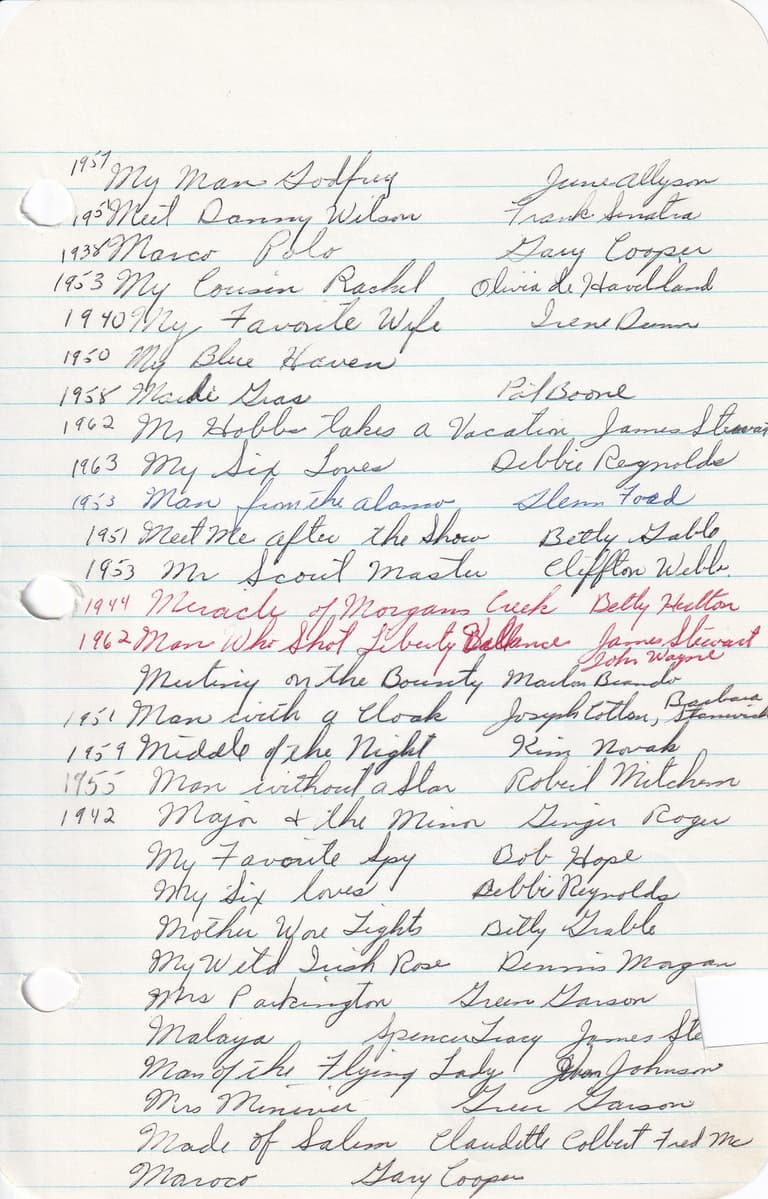 1957 My Man Godfrey June Allyson
195 Meet Danny Wilson Frank Sinatra
1938 Marco Polo Gary Cooper
1953 My Cousin Rachel Olivia de Havilland
1940 My Favorite Wife Irene Dunn
1950 My Blue Haven
1958 Mardi Gras Pat Boone
1962 Mr Hobbs takes a Vacation James Stewar
1963 My Six Loves Debbie Reynolds
1953 Man from the alamo Glenn Ford
1951 Meet Me after the Show Betty Gable
1953 Mr Scout Master Cliffton Webb
1944 Miracle of Morgans Creek Betty Hutton
1962 Man Who Shot Liberty Ballance James Stewart
John Wayne
Mutiny on the Bounty Marlon Brando
1951 Man with a Cloak Joseph Cotton, Barbara Stanwick
1959 Middle of the Night Kim Novak
1955 Man without a Star Robert Mitchem
1942 Major & the Minor Ginger Roger
My Favorite Spy Bob Hope
My Six loves Debbie Reynolds
Mother Wore Tights Betty Grable
My Wild Irish Rose Dennis Morgan
Mrs Parkington Greer Garson
Malaya Spencer Tracy James Ste
Man of the Flying Lady Johnson
Mrs Miniver Greer Garson
Made of Salem Claudette Colbert Fred Mc
Maroco Gary Cooper